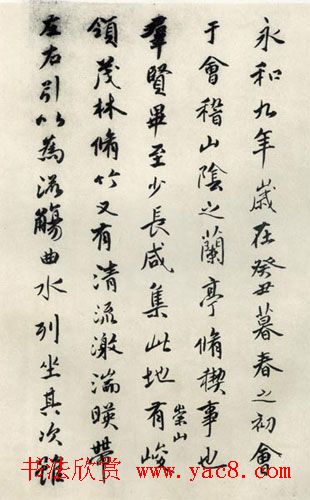 永和九年歲在癸丑暮春之初會
于會稽山陰之蘭亭脩禊事也
羣賢畢至少長咸集此地有崇山峻
領茂林脩竹又有清流激湍暎帶
左右引以為流觴曲水列坐其次雖
书法欣赏 www.yac8.com